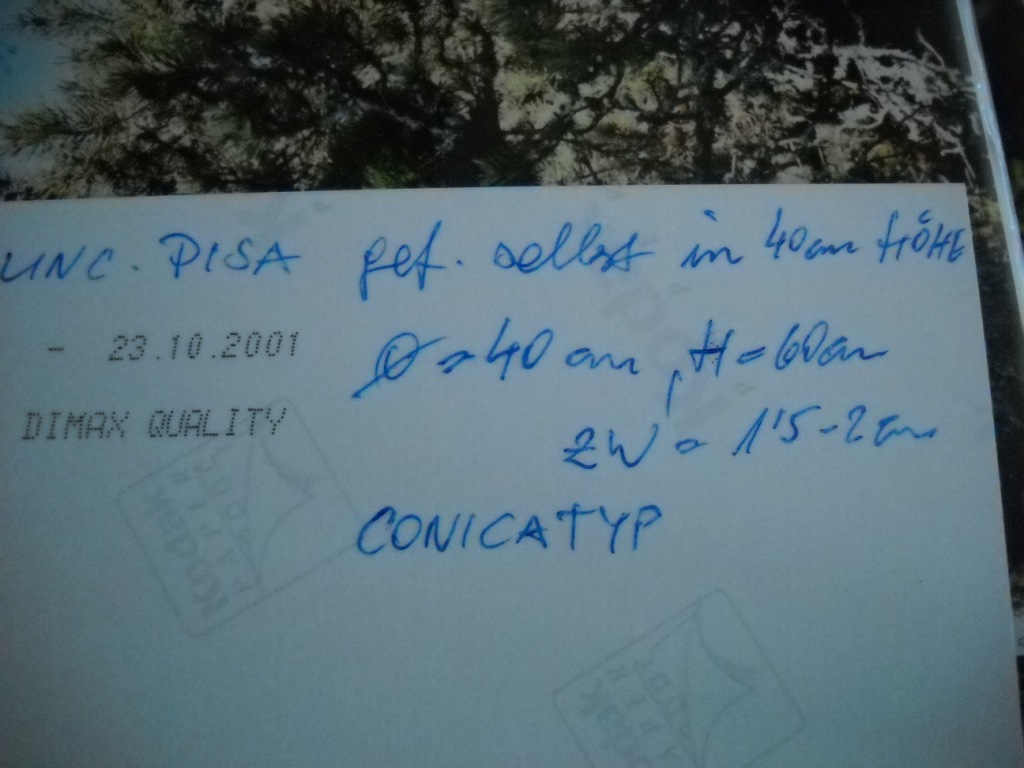 UNC. PISA gef. selbst in 40cm HÖHE
- 23.10.2001
Ø = 40 cm, H = 60cm
DIMAX QUALITY
ZW = 1'5-2cm
CONICATYP
Kodak
Kodak